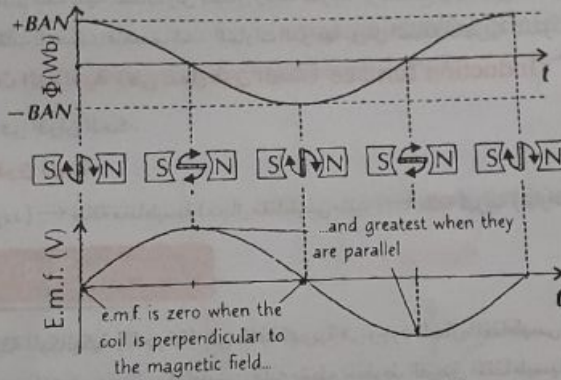 +BAN
Φ(Wb)
t
−BAN
S N S N S N S N S N
E.m.f. (V)
...and greatest when they
are parallel
t
e.m.f. is zero when the
coil is perpendicular to
the magnetic field...